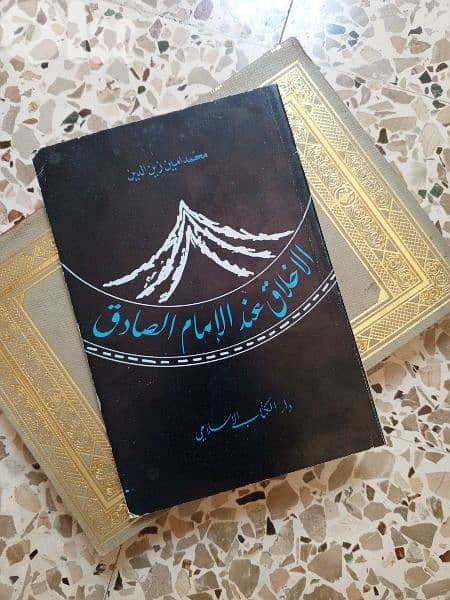 محمد امين زين الدين
الاخلاق عند الإمام الصادق
دار الكتاب الاسلامي